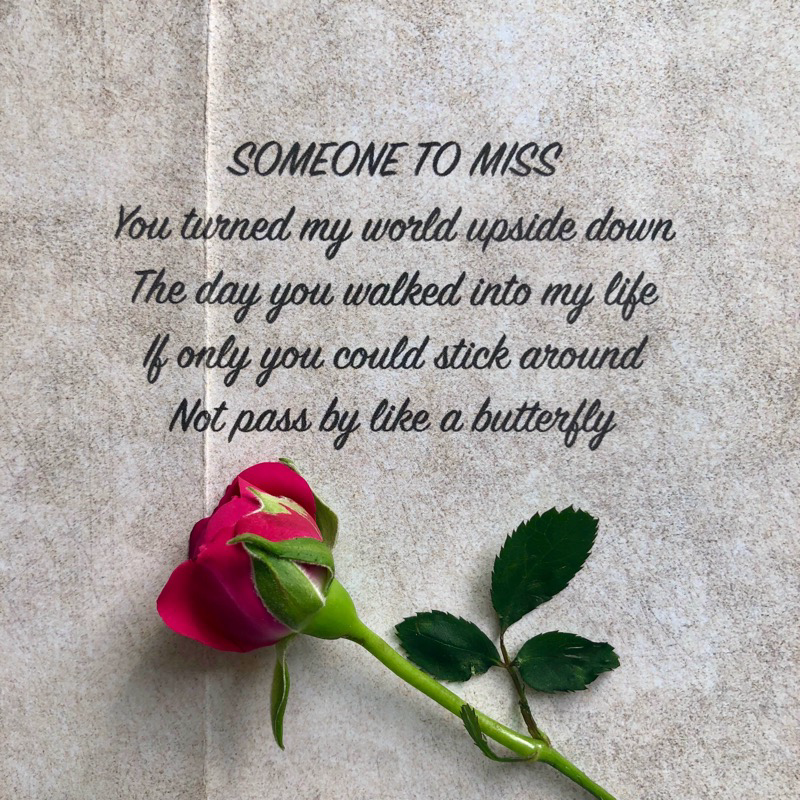 SOMEONE TO MISS
You turned my world upside down
The day you walked into my life
If only you could stick around
Not pass by like a butterfly